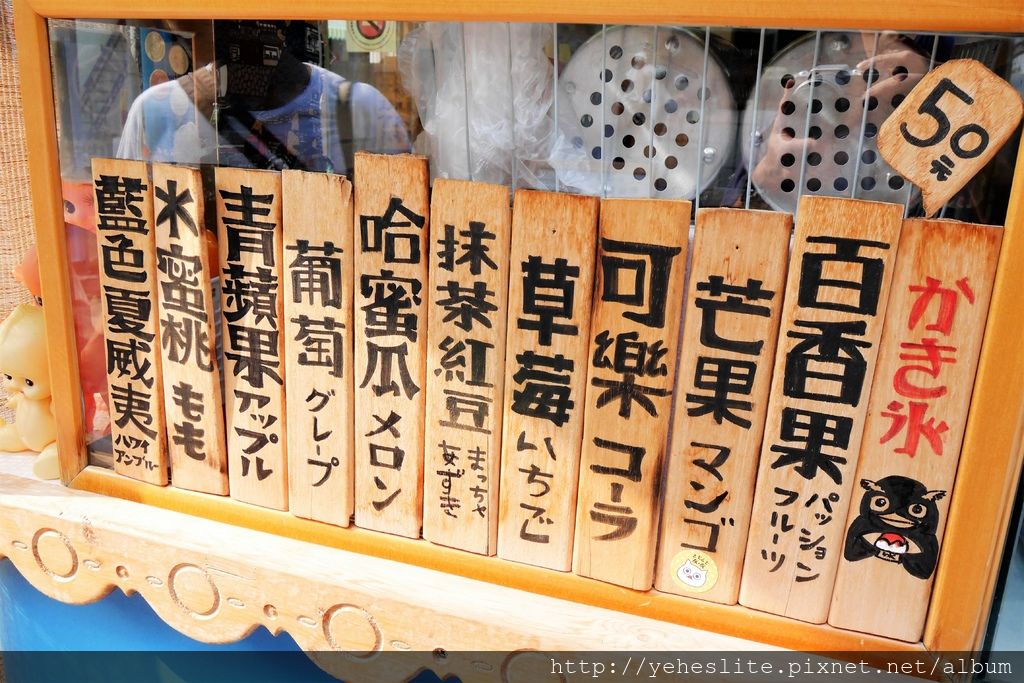 50元
かき氷
百香果
パッション
フルーツ
芒果 マンゴ
可樂 コーラ
草莓 いちご
抹茶紅豆
まっちゃ
あずき
哈蜜瓜 メロン
葡萄 グレープ
青蘋果 アップル
水蜜桃 もも
藍色夏威夷
ハワイ
アンブルー
http://yeheslite.pixnet.net/album